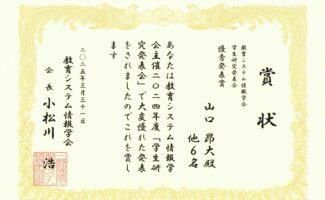 賞状
教育システム情報学会
学生研究発表会
優秀発表賞
山口 昂大殿
他6名
あなたは教育システム情報学
会主催2024年度「学生研
究発表会」で大変優れた発表
をされましたのでこれを賞し
ます
二〇二五年三月三十一日
教育システム情報学会
会長 小松川 浩